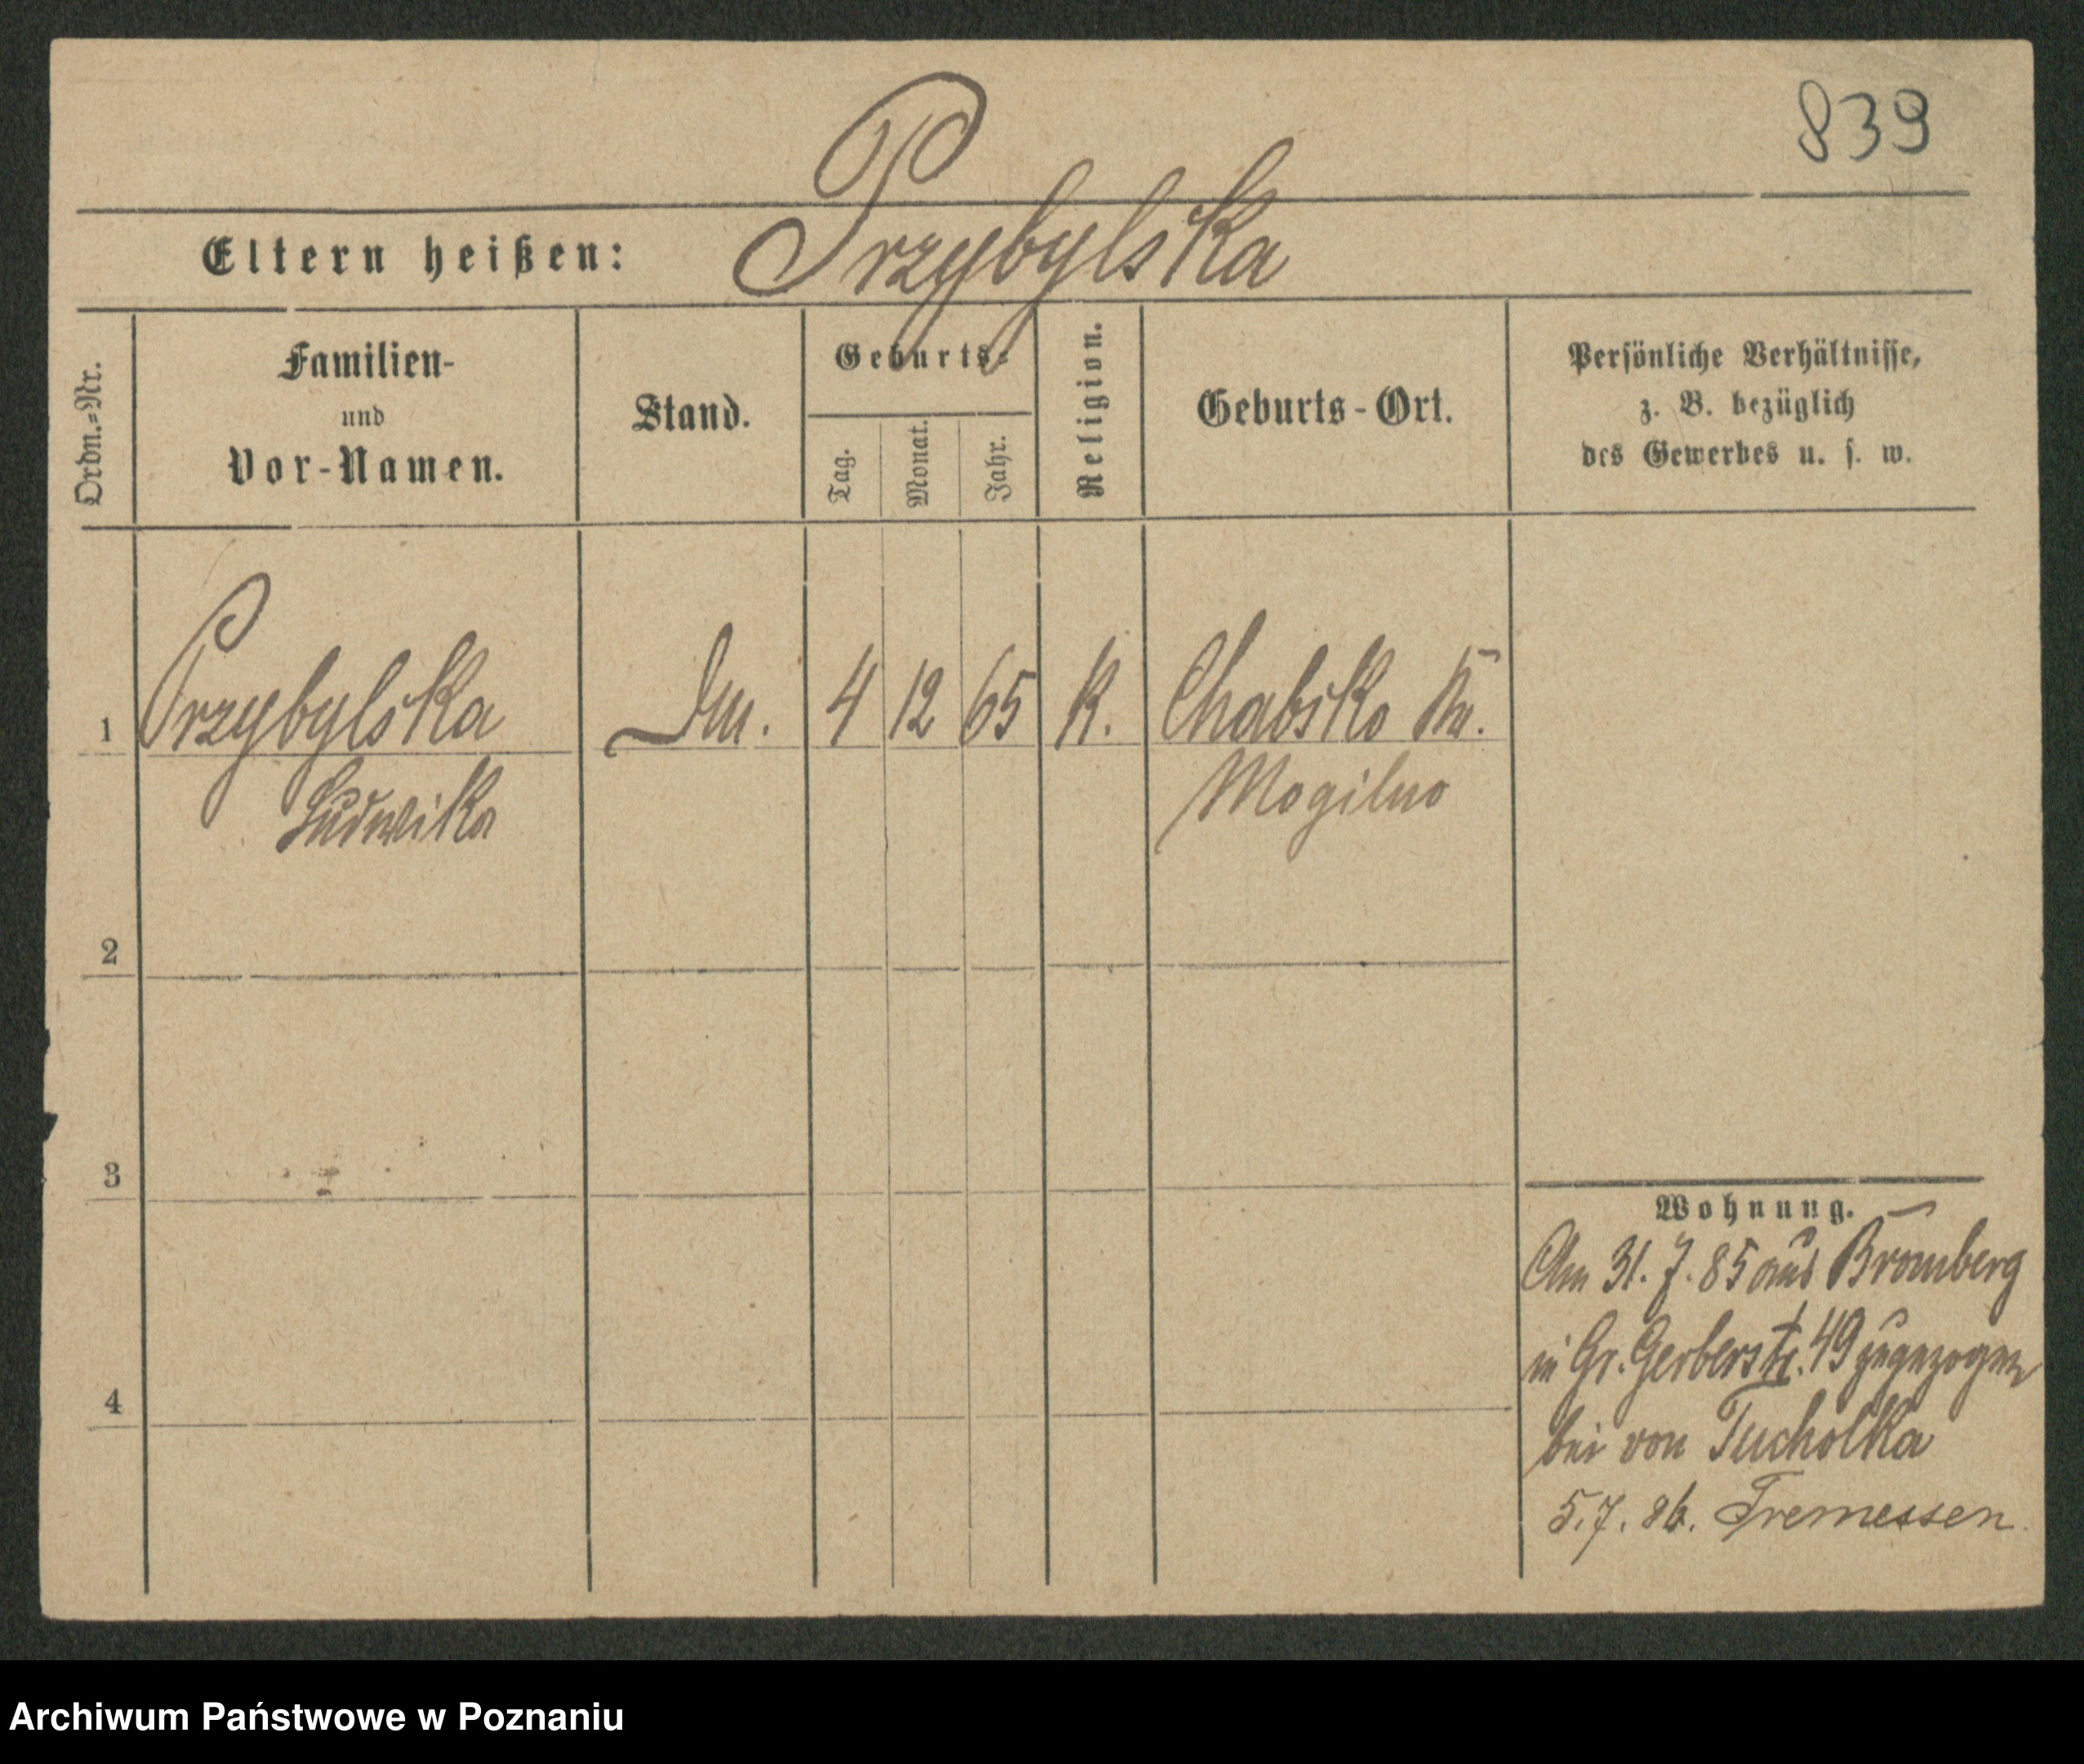 839
Przybylska
Eltern heißen:
Ordn.=Nr.
Familien-
und
Vor-Namen.
Stand.
Geburts=
Tag.
Monat.
Jahr.
Religion.
Geburts-Ort.
Persönliche Verhältnisse,
z. B. bezüglich
des Gewerbes u. s. w.
1 Przybylska 4 12 65 K. Chabsko Kr.
Ludwika Mogilno
2
3
4
Wohnung.
Am 31. 7. 85 aus Bromberg
in Gr. Gerberstr. 49 zugezogen
bei von Tucholka
5. 7. 86. Tremessen.
Archiwum Państwowe w Poznaniu